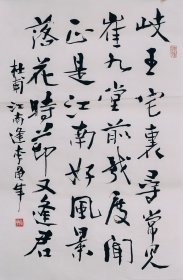 岐王宅裏尋常見
崔九堂前几度聞
正是江南好風景
落花時節又逢君
杜甫 江南逢李龜年